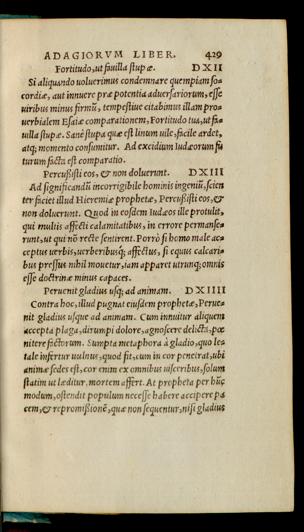 ADAGIORVM LIBER. 429
Fortitudo, ut fauilla stupæ. DXII
Si aliquando uoluerimus condemnare quempiam so-
cordiæ, aut innuere præ potentia aduersariorum, esse
uiribus minus firmũ, tempestiue citabimus illam pro-
uerbialem Esaiæ comparationem, Fortitudo tua, ut fa-
uilla stupæ. Sanè stupa quæ est linum uile, facile ardet,
atq; momento consumitur. Ad excidium Iudæorum fu
turum facta est comparatio.
Percußisti eos, & non doluerunt. DXIII
Ad significandũ incorrigibile hominis ingeniũ, scien
ter faciet illud Hieremiæ prophetæ, Percußisti eos, &
non doluerunt. Quod in eosdem Iudæos ille protulit,
qui multis affecti calamitatibus, in errore permanse-
runt, ut qui nõ rectè sentirent. Porrò si homo male ac-
ceptus uerbis, uerberibusq; affectus, si equus calcari-
bus pressus nihil mouetur, iam apparet utrunq; omnis
esse doctrinæ minus capaces.
Peruenit gladius usq; ad animam. DXIIII
Contra hoc, illud pugnat eiusdem prophetæ, Perue-
nit gladius usque ad animam. Cum innuitur aliquem
accepta plaga, dirumpi dolore, agnoscere delicta, pœ
nitere factorum. Sumpta metaphora à gladio, quo le-
tale infertur uulnus, quod fit, cum in cor peneirat, ubi
animæ sedes est, cor enim ex omnibus uisceribus, solum
statim ut læditur, mortem affert. At propheta per hũc
modum, ostendit populum necesse habere accipere pa
cem, & repromißionẽ, quæ non sequentur, nisi gladius